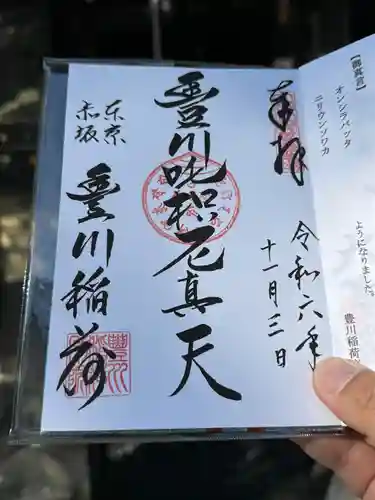 【御真言】
オンシラバッタ
ニリウンソワカ
ようになりました。
豊川稲荷
奉拝
令和六年
十一月三日
豊川吒枳尼真天
東京
赤坂
豊川稲荷